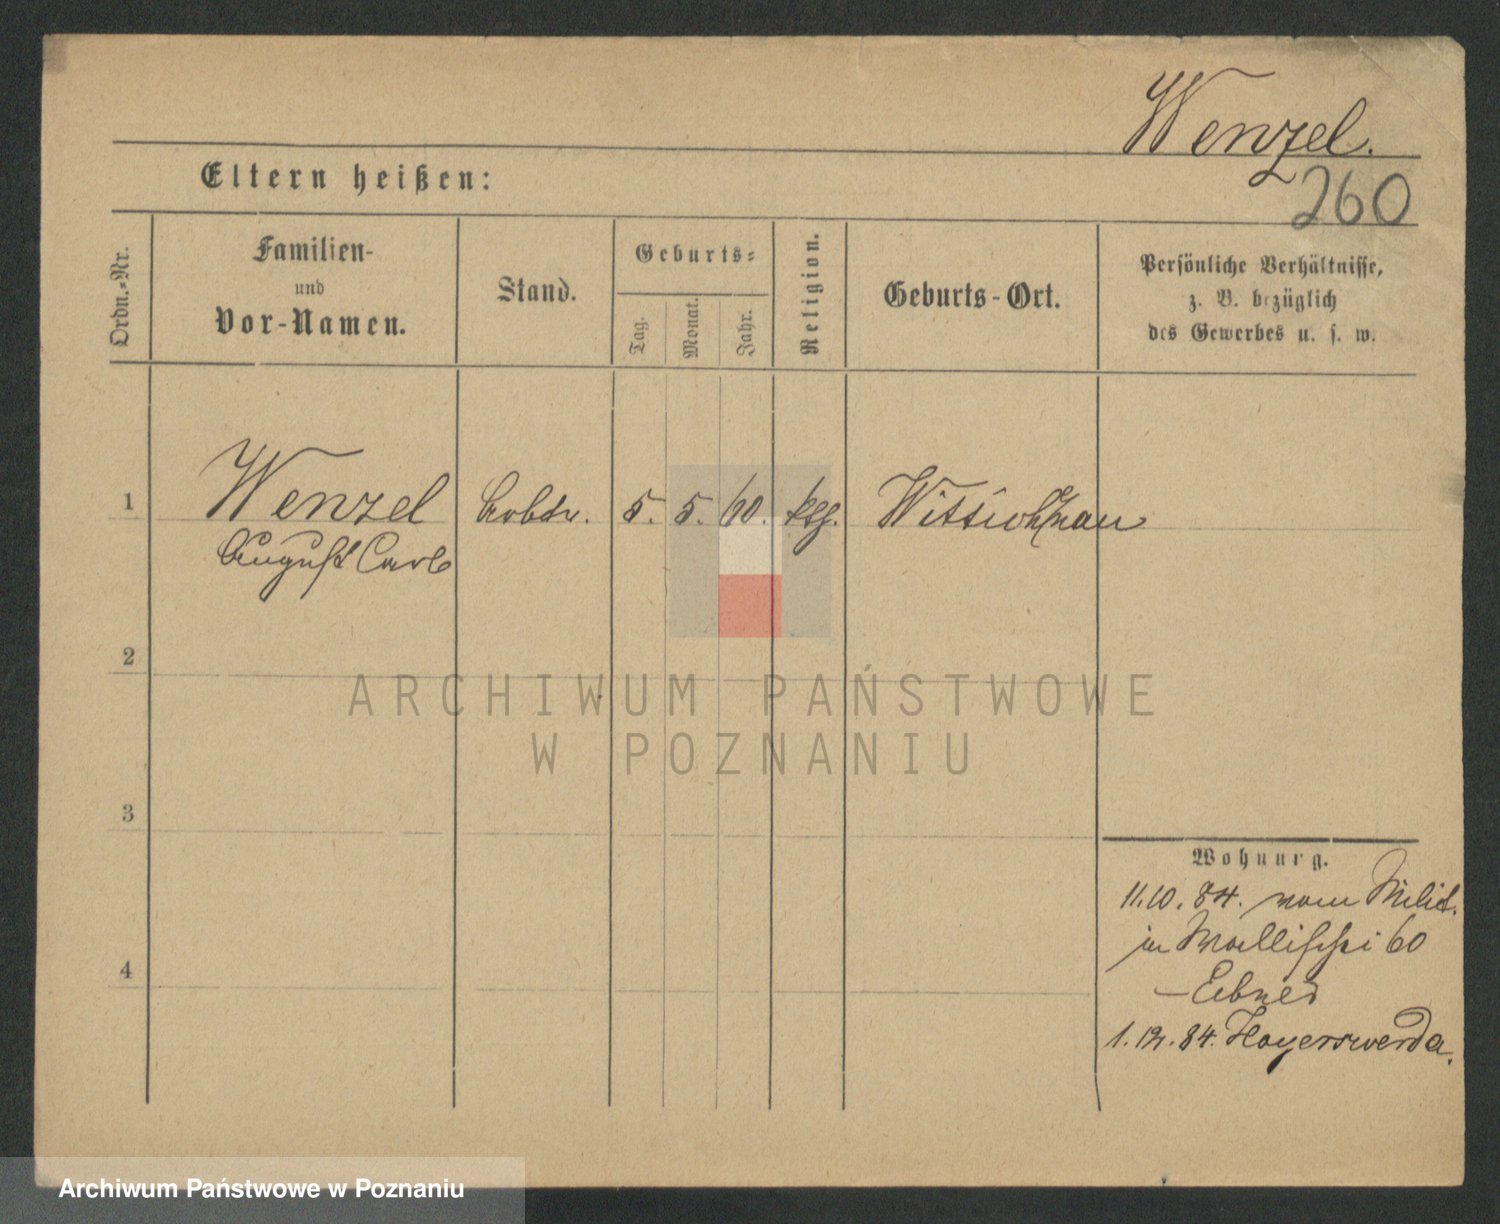 Wenzel.
260
Eltern heißen:
Ordn.-Nr.
Familien-
und
Vor-Namen.
Stand.
Geburts-
Tag.
Monat.
Jahr.
Religion.
Geburts-Ort.
Persönliche Verhältnisse,
z. B. bezüglich
des Gewerbes u. s. w.
1 Wenzel 5. 5. 60.
August Carl
2
ARCHIWUM PAŃSTWOWE
W POZNANIU
3
Wohnung.
11.10.84. vom Milit.
in Wallischei 60
1.12.84. Hoyerswerda.
4
Archiwum Państwowe w Poznaniu